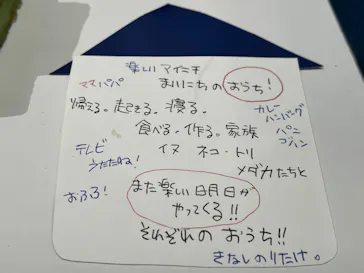 楽しい マイニチ
ママ パパ まいにちの おうち!
帰える。起きる。寝る。 カレー
ハンバーグ
食べる・作る。家族 パン
ゴハン
テレビ イヌ ネコ・トリ
うたたね! メダカたちと
おふろ! また楽しい明日が
やってくる!!
それぞれの おうち!!
きなしのりたけ。